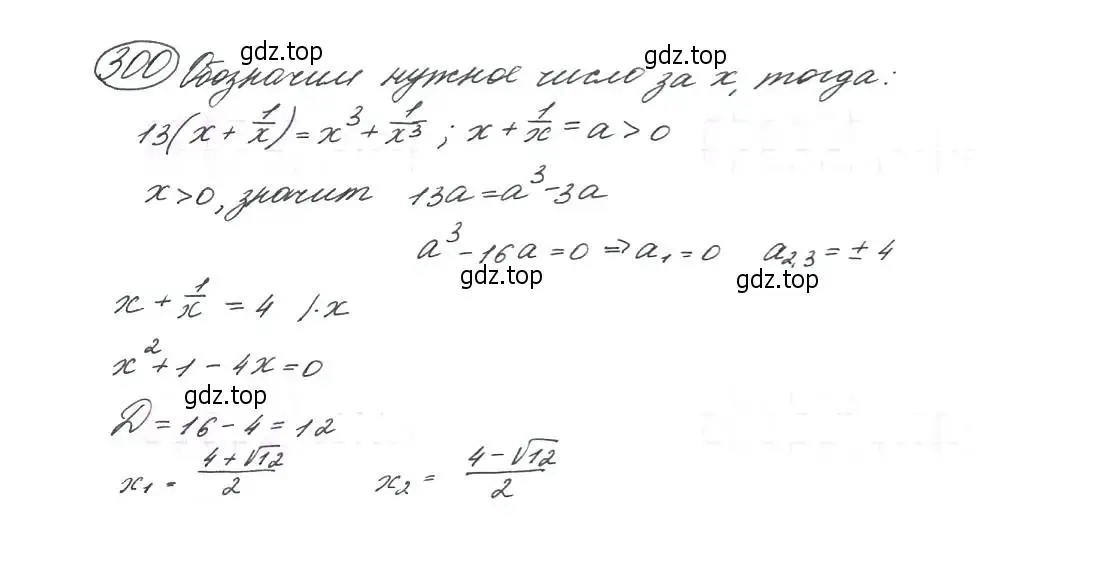 gdz.top gdz.top
300 Обозначим нужное число за x, тогда:
13(x + 1/x) = x³ + 1/x³ ; x + 1/x = a > 0
x > 0, значит 13a = a³ - 3a
a³ - 16a = 0 ⇒ a₁ = 0 a₂,₃ = ± 4
gdz.top gdz.top
x + 1/x = 4 /·x
x² + 1 - 4x = 0
gdz.top
D = 16 - 4 = 12
x₁ = (4 + √12)/2 x₂ = (4 - √12)/2